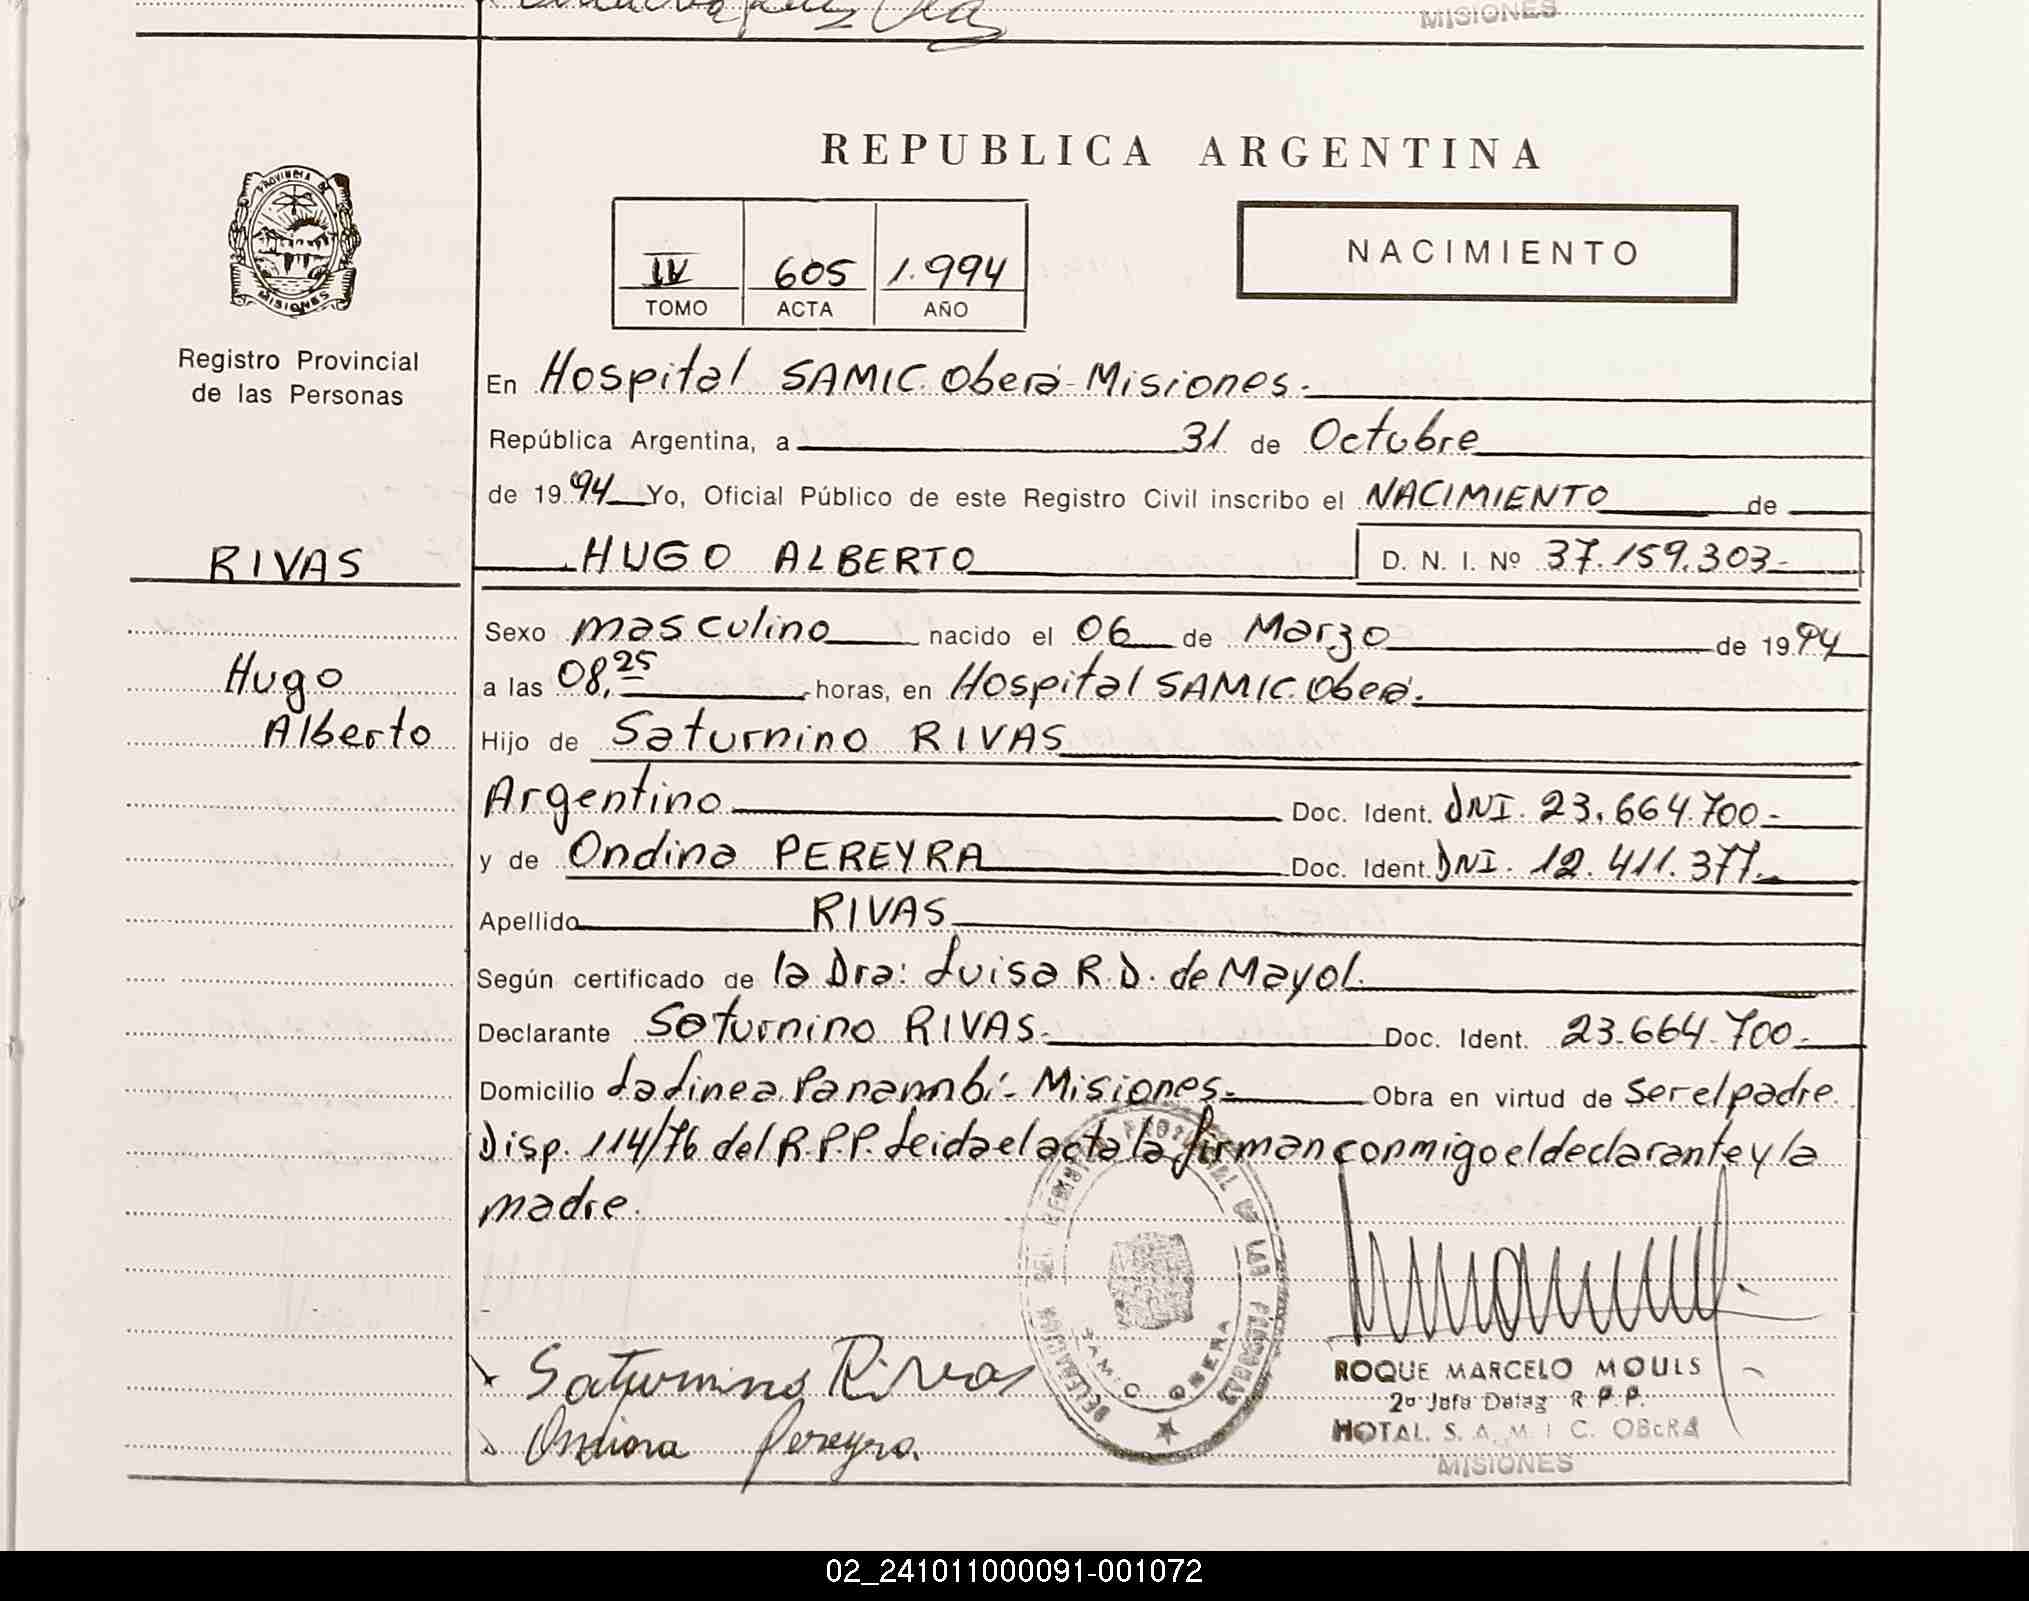 MISIONES
REPUBLICA ARGENTINA
PROVINCIA DE
MISIONES
Registro Provincial
de las Personas
IV 605 1.994
TOMO ACTA AÑO
NACIMIENTO
En Hospital SAMIC. Oberá-Misiones.
República Argentina, a 31 de Octubre
de 1994 Yo, Oficial Público de este Registro Civil inscribo el NACIMIENTO de
RIVAS
HUGO ALBERTO D. N. I. Nº 37.159.303-
Sexo masculino nacido el 06 de Marzo de 1994
Hugo
Alberto
a las 08,25 horas, en Hospital SAMIC. Oberá.
Hijo de Saturnino RIVAS
Argentino Doc. Ident. DNI. 23.664.700-
y de Ondina PEREYRA Doc. Ident. DNI. 12.411.377.
Apellido RIVAS
Según certificado de la Dra: Luisa R.D. de Mayol.
Declarante Saturnino RIVAS. Doc. Ident. 23.664.700-
Domicilio La Linea Panambí- Misiones. Obra en virtud de Ser el padre.
Disp. 114/76 del R.P.P. Leida el acta la firman conmigo el declarante y la
madre.
DELEGACION DEL REGISTRO PROVINCIAL DE LAS PERSONAS
SAMIC OBERA
Saturnino Rivas
Ondina Pereyra.
ROQUE MARCELO MOULS
2º Jefe Deleg R.P.P.
HOTAL. S. A. M. I C. OBERA
MISIONES
02_241011000091-001072